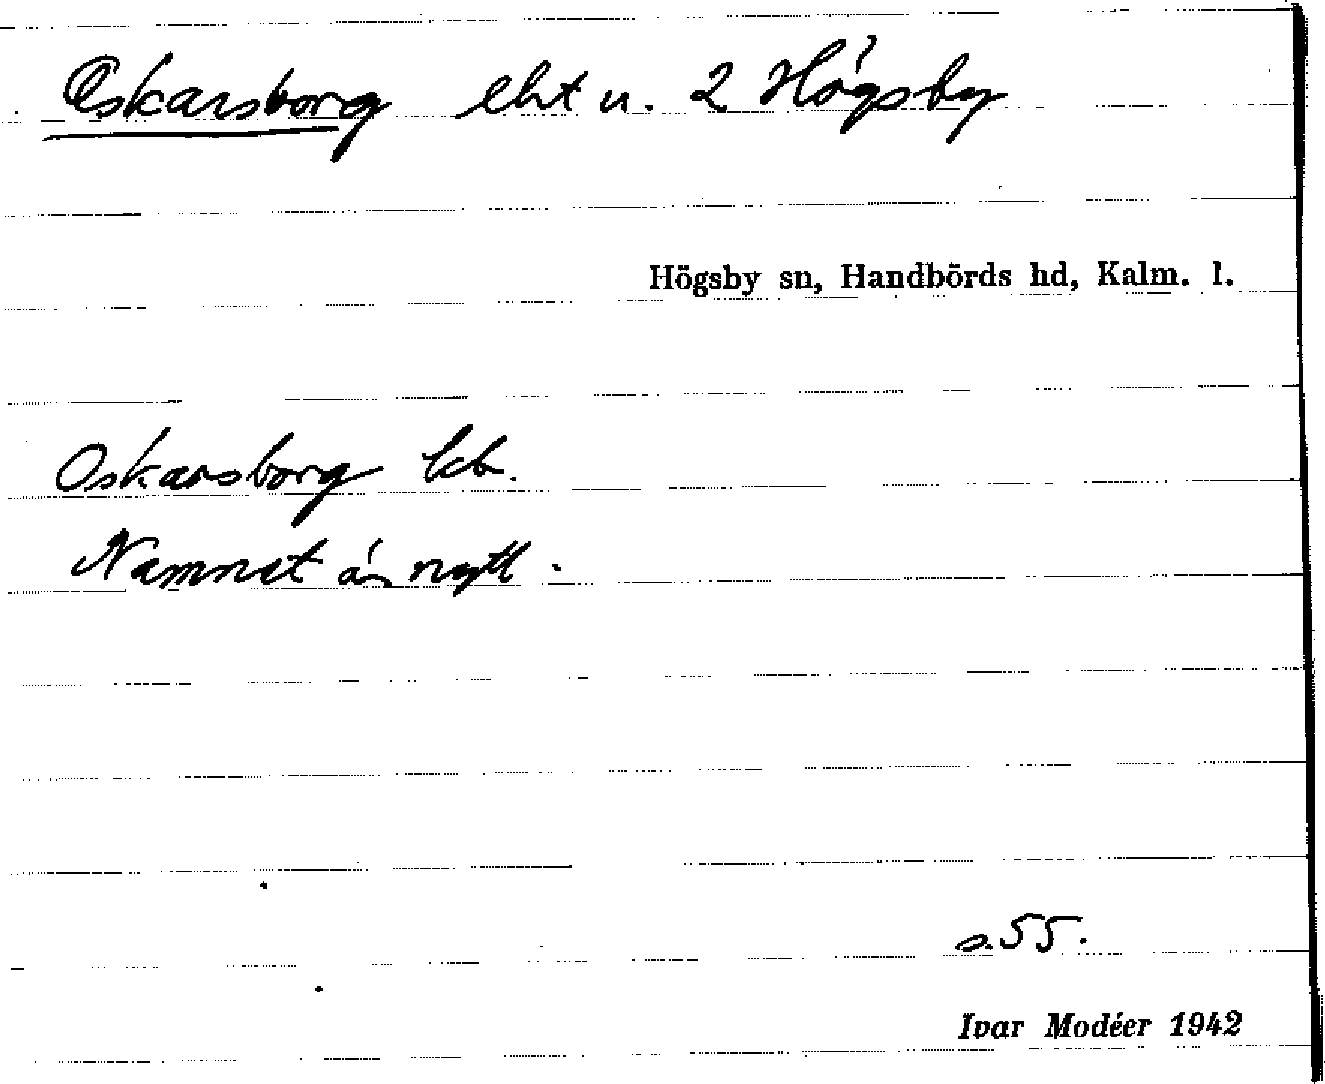 Oskarsborg lht u. 2 Högsby
Högsby sn, Handbörds hd, Kalm. l.
Oskarsborg kb.
Namnet är nytt.
s. 55.
Ivar Modéer 1942